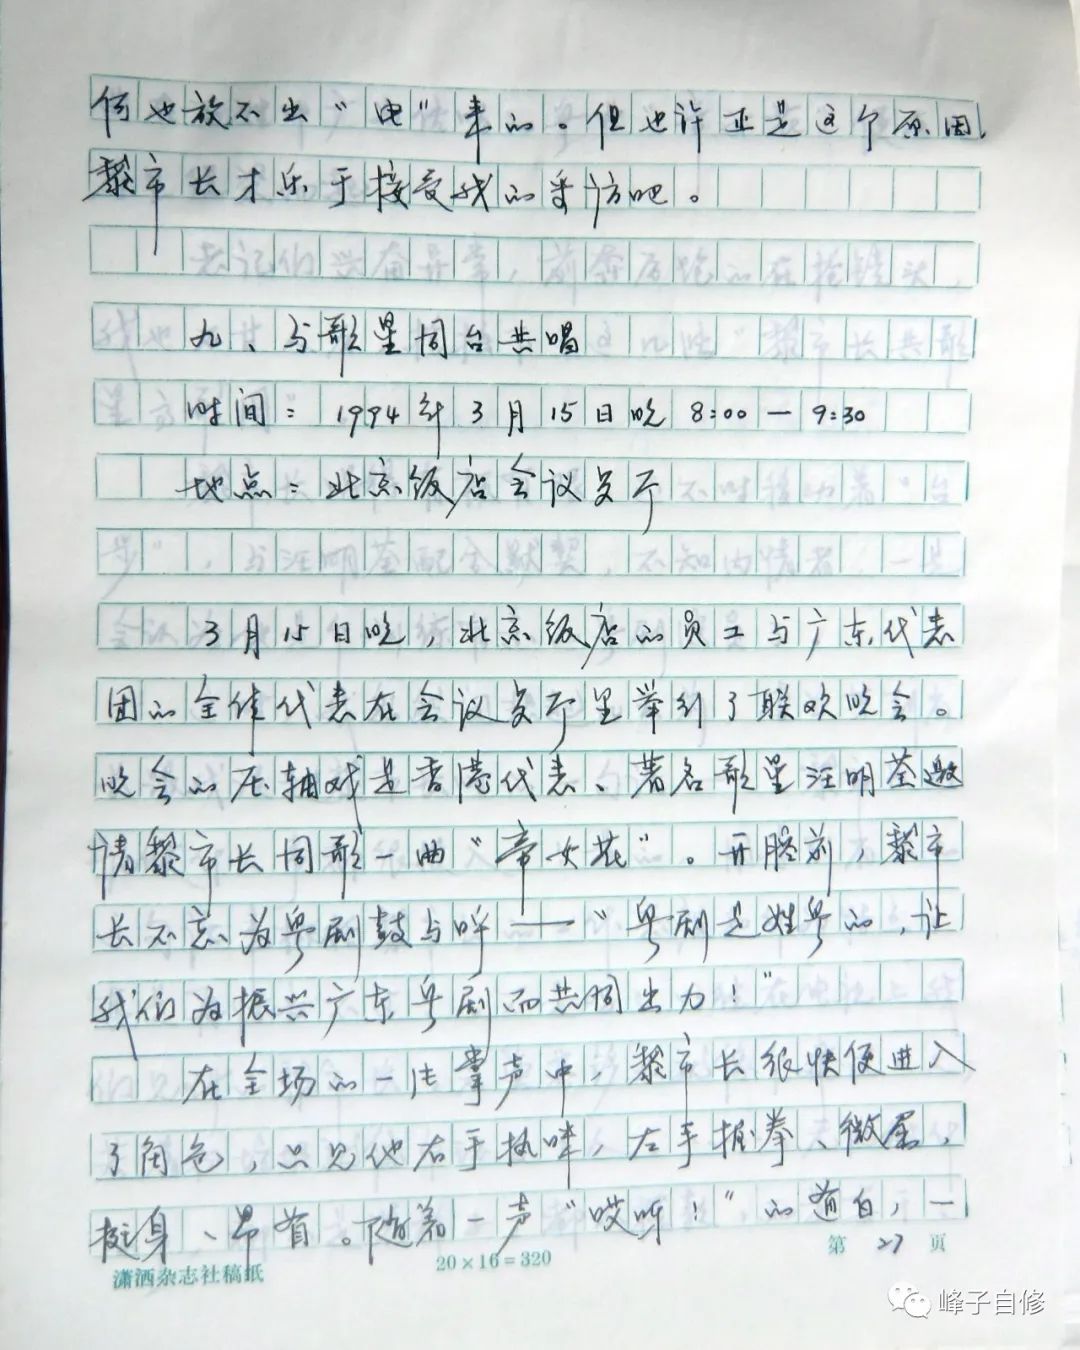 何也放不出“电”来的。但也许正是这个原因，
黎市长才乐于接受我的采访吧。
九、与歌星同台共唱
时间：1994年3月15日晚8:00—9:30
地点：北京饭店会议多厅
3月15日晚，北京饭店的员工与广东代表
团的全体代表在会议多厅里举行了联欢晚会。
晚会的压轴戏是香港代表、著名歌星汪明荃邀
请黎市长同歌一曲“帝女花”。开腔前，黎市
长不忘为粤剧鼓与呼——“粤剧是姓粤的，让
我们为振兴广东粤剧而共同出力！”
在全场的一片掌声中，黎市长很快便进入
了角色，只见他右手执咪，左手握拳、微屈，
挺身、昂首。随着一声“哎呀！”的道白，一
潇洒杂志社稿纸
20×16=320
第27页
峰子自修